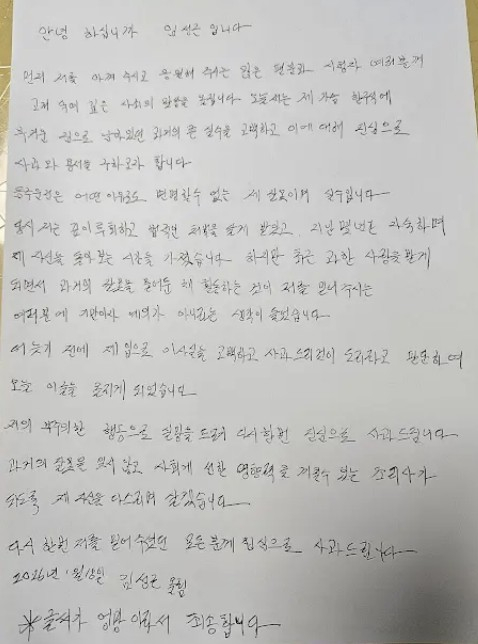 안녕 하십니까 임성근 입니다
먼저 저를 아껴 주시고 응원해 주시는 많은 팬분과 시청자 여러분께
고개 숙여 깊은 사죄의 말씀을 올립니다 오늘 저는 제 가슴 한구석에
무거운 짐으로 남아있던 과거의 큰 실수를 고백하고 이에 대해 진심으로
사과와 용서를 구하고자 합니다
음주운전은 어떤 이유로도 변명할수 없는 제 잘못이며 실수입니다
당시 저는 깊이 후회하고 법적인 처벌을 달게 받았고, 지난 몇년간 자숙하며
제 자신을 돌아보는 시간을 가졌습니다 하지만 최근 과한 사랑을 받게
되면서 과거의 잘못을 묻어둔 채 활동하는 것이 저를 믿어주시는
여러분에 기만이자 예의가 아니라는 생각이 들었습니다
더 늦기 전에 제 입으로 이사실을 고백하고 사과드리는것이 도리라고 판단하여
오늘 이글을 올리게 되었습니다
저의 부주의한 행동으로 실망을 드려 다시한번 진심으로 사과드립니다
과거의 잘못을 잊지 않고 사회에 선한 영향력로 저할수 있는 조리사가
되도록 제 자신을 다스리며 살겠습니다
다시 한번 저를 믿어 주셨던 모든 분께 진심으로 사과드립니다
2026년 1월18일 임성근 올림
*글씨가 엉망 이라서 죄송합니다